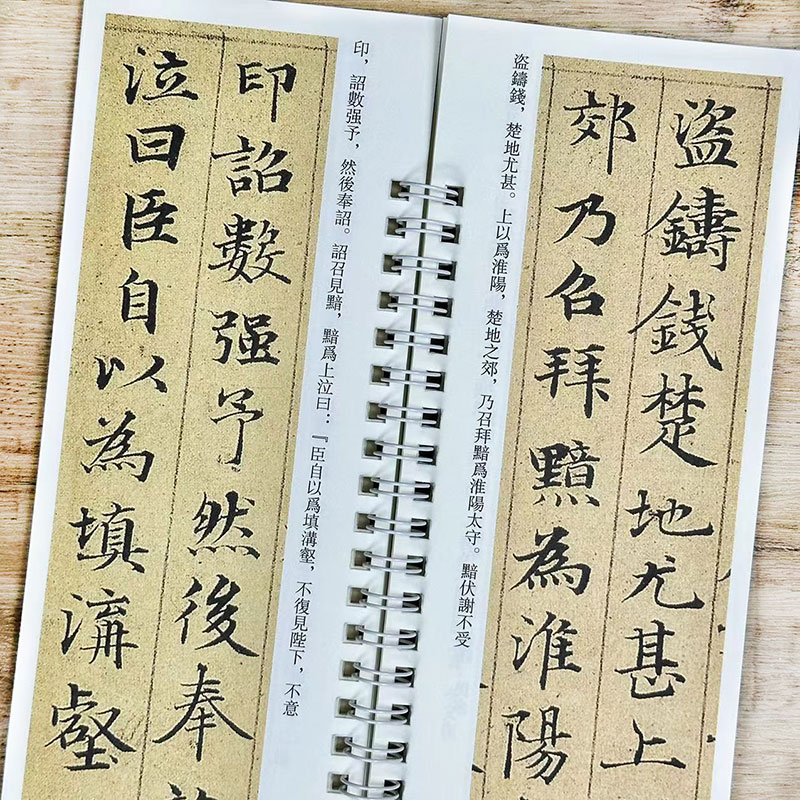 盜鑄錢楚地尤甚上
郊乃召拜黯為淮陽
盜鑄錢，楚地尤甚。上以爲淮陽，楚地之郊，乃召拜黯爲淮陽太守。黯伏謝不受
印，詔數强予，然後奉詔。詔召見黯，黯爲上泣曰：『臣自以爲填溝壑，不復見陛下，不意
印詔數强予然後奉
泣曰臣自以為填溝壑